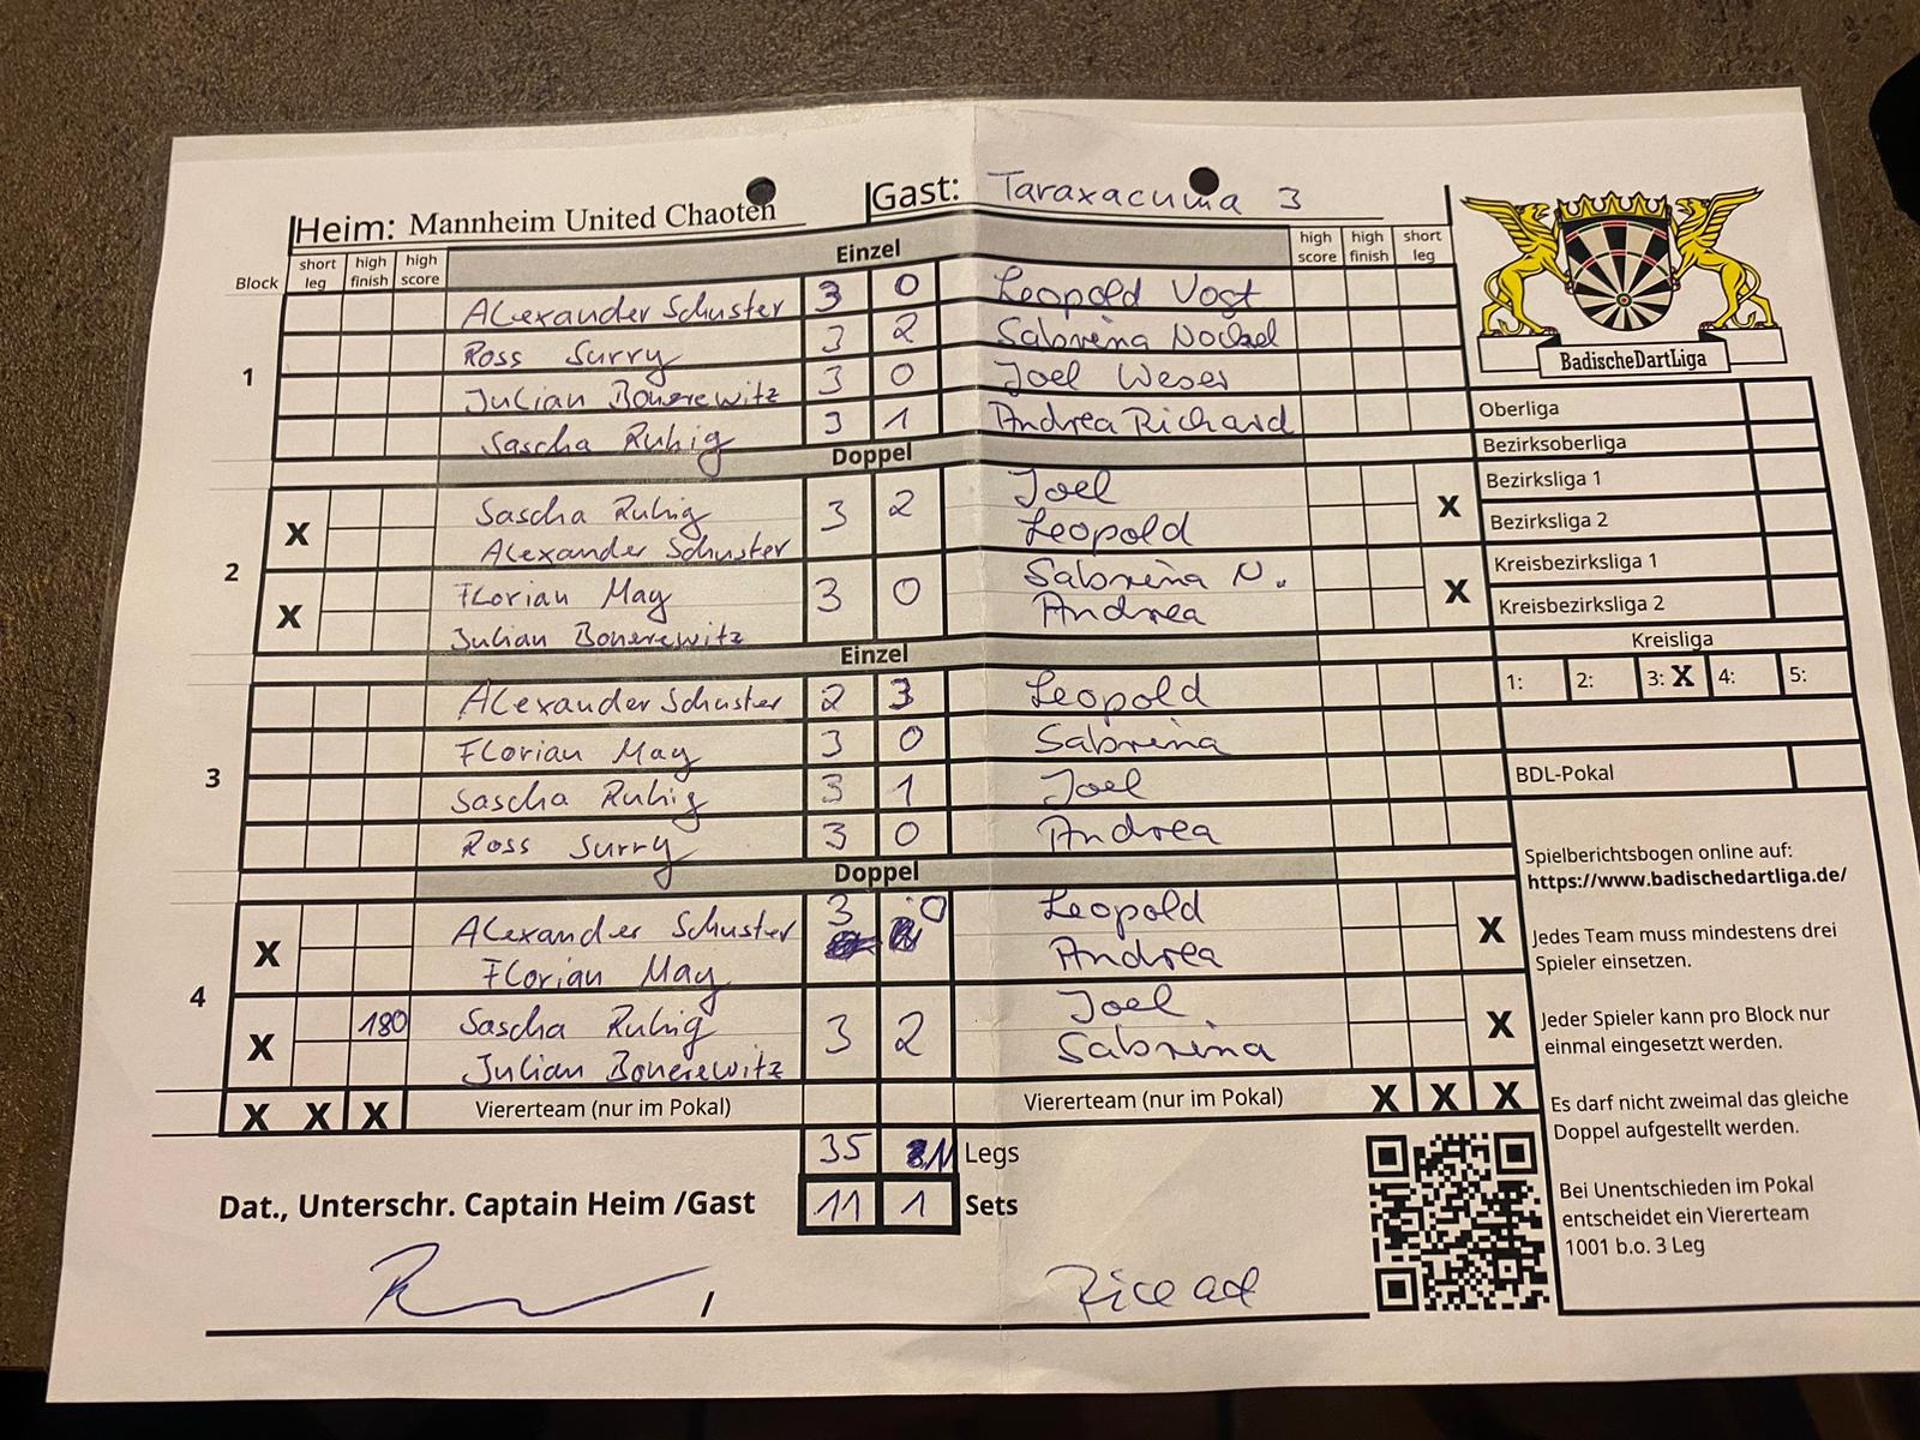 Heim: Mannheim United Chaoten Gast: Taraxacuma 3
Block short leg high finish high score Einzel high score high finish short leg
1
Alexander Schuster 3 0 Leopold Vogt
Ross Surry 3 2 Sabrina Nockel
Julian Bonerewitz 3 0 Joel Weser
Sascha Ruhig 3 1 Andrea Richard
Doppel
2
X Sascha Ruhig 3 2 Joel X
Alexander Schuster Leopold
X Florian May 3 0 Sabrina N. X
Julian Bonerewitz Andrea
Einzel
3
Alexander Schuster 2 3 Leopold
Florian May 3 0 Sabrina
Sascha Ruhig 3 1 Joel
Ross Surry 3 0 Andrea
Doppel
4
X Alexander Schuster 3 0 Leopold X
Florian May Andrea
X 180 Sascha Ruhig 3 2 Joel X
Julian Bonerewitz Sabrina
X X X Viererteam (nur im Pokal) Viererteam (nur im Pokal) X X X
35 11 Legs
Dat., Unterschr. Captain Heim /Gast 11 1 Sets
/
BadischeDartLiga
Oberliga
Bezirksoberliga
Bezirksliga 1
Bezirksliga 2
Kreisbezirksliga 1
Kreisbezirksliga 2
Kreisliga
1: 2: 3: X 4: 5:
BDL-Pokal
Spielberichtsbogen online auf:
https://www.badischedartliga.de/
Jedes Team muss mindestens drei
Spieler einsetzen.
Jeder Spieler kann pro Block nur
einmal eingesetzt werden.
Es darf nicht zweimal das gleiche
Doppel aufgestellt werden.
Bei Unentschieden im Pokal
entscheidet ein Viererteam
1001 b.o. 3 Leg